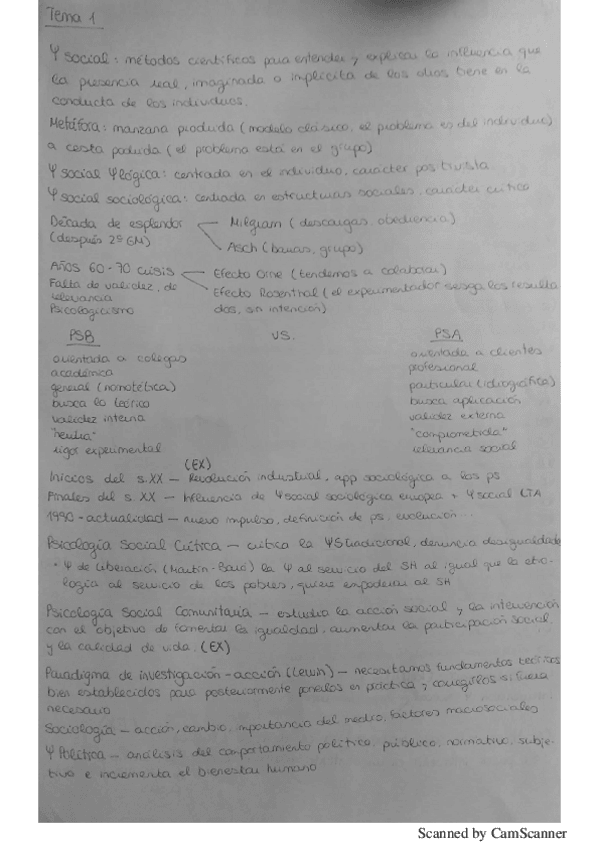 Tema 1
Ψ social: métodos científicos para entender y explicar la influencia que
la presencia real, imaginada o implícita de los otros tiene en la
conducta de los individuos.
Metáfora: manzana podrida (modelo clásico, el problema es del individuo)
a cesta podrida (el problema está en el grupo)
Ψ social Ψlógica: centrada en el individuo, carácter positivista.
Ψ social sociológica: centrada en estructuras sociales, carácter crítico
Década de esplendor — Milgram (descargas, obediencia)
(después 2ª GM) Asch (barras, grupo)
Años 60-70 crisis — Efecto Orne (tendemos a colaborar)
Falta de validez, de Efecto Rosenthal (el experimentador sesga los resulta
relevancia dos, sin intención)
Psicologicismo
PSB VS. PSA
orientada a colegas orientada a clientes
académica profesional
general (nomotética) particular (idiográfica)
busca lo teórico busca aplicación
validez interna validez externa
"neutra" "comprometida"
rigor experimental relevancia social
(EX)
Inicios del s.XX — Revolución industrial, app sociológica a los ps
Finales del s. XX — Influencia de Ψsocial sociológica europea + Ψsocial LTA
1990 - actualidad — nuevo impulso, definición de ps, evolución...
Psicología Social Crítica — critica la ΨS tradicional, denuncia desigualdade
Ψ de liberación (Martín-Baró) la Ψ al servicio del SH al igual que la
logía al servicio de los pobres, quiere empoderar al SH
Psicología Social Comunitaria — estudia la acción social y la intervención
con el objetivo de fomentar la igualdad, aumentar la participación social
y la calidad de vida. (EX)
Paradigma de investigación-acción (Lewin) — necesitamos fundamentos teóricos
bien establecidos para posteriormente ponerlos en práctica y corregirlos si fuera
necesario
Sociología — acción, cambio, importancia del medio, factores macrosociales
Ψ Política — análisis del comportamiento político, público, normativo, subje-
tivo e incrementa el bienestar humano
Scanned by CamScanner